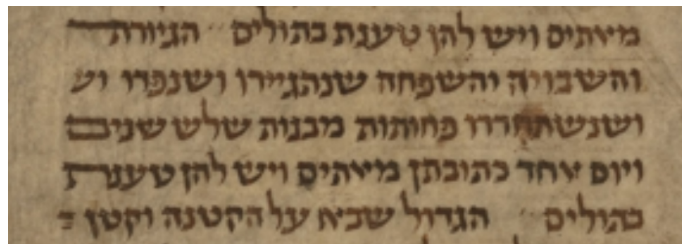 מיאתים ויש להן טענת בתולים הגיורת
והשבויה והשפחה שנתגיירו ושנפדו וש
ושנשתחררו פחותות מבנות שלש שנים
ויום אחד כתובתן מיאתים ויש להן טענת
בתולים הגדול שבא על הקטנה וקטן